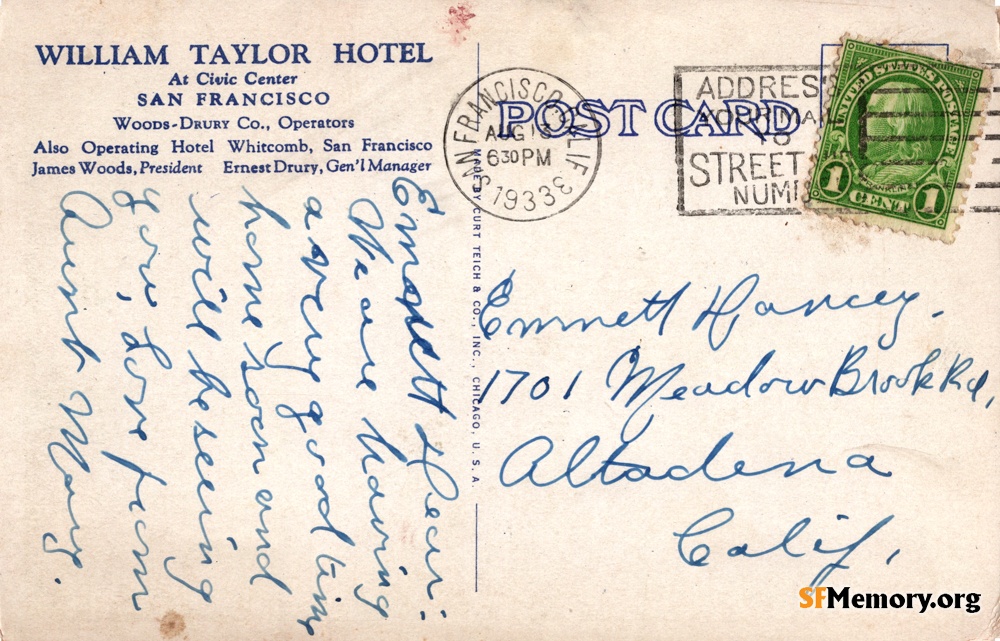 WILLIAM TAYLOR HOTEL
At Civic Center
SAN FRANCISCO
WOODS-DRURY CO., Operators
Also Operating Hotel Whitcomb, San Francisco
James Woods, President Ernest Drury, Gen'l Manager
POST CARD
SAN FRANCISCO, CALIF.
AUG 13
630 PM
1933
3
ADDRESS
YOUR MAIL
TO
STREET
NUM
UNITED STATES POSTAGE
FRANKLIN
1 CENT 1
MADE BY CURT TEICH & CO., INC., CHICAGO, U. S. A.
Emmett Dear:
We are having
a very good time
home soon and
will be seeing
you, Love from
Aunt May.
Emmett Dancey.
1701 Meadow Brook Rd,
Altadena
Calif,
SFMemory.org